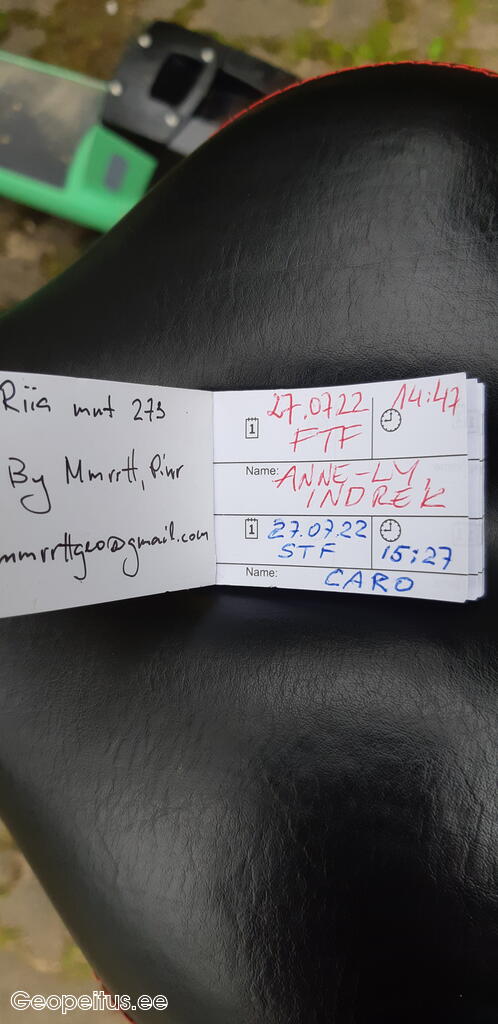 Riia mnt 273
By Mmrrtt, Piwr
mmrrttgeo@gmail.com
27.07.22 14:47
FTF
Name: ANNE-LY,
INDREK
27.07.22
STF 15:27
Name: CARO
Geopeitus.ee